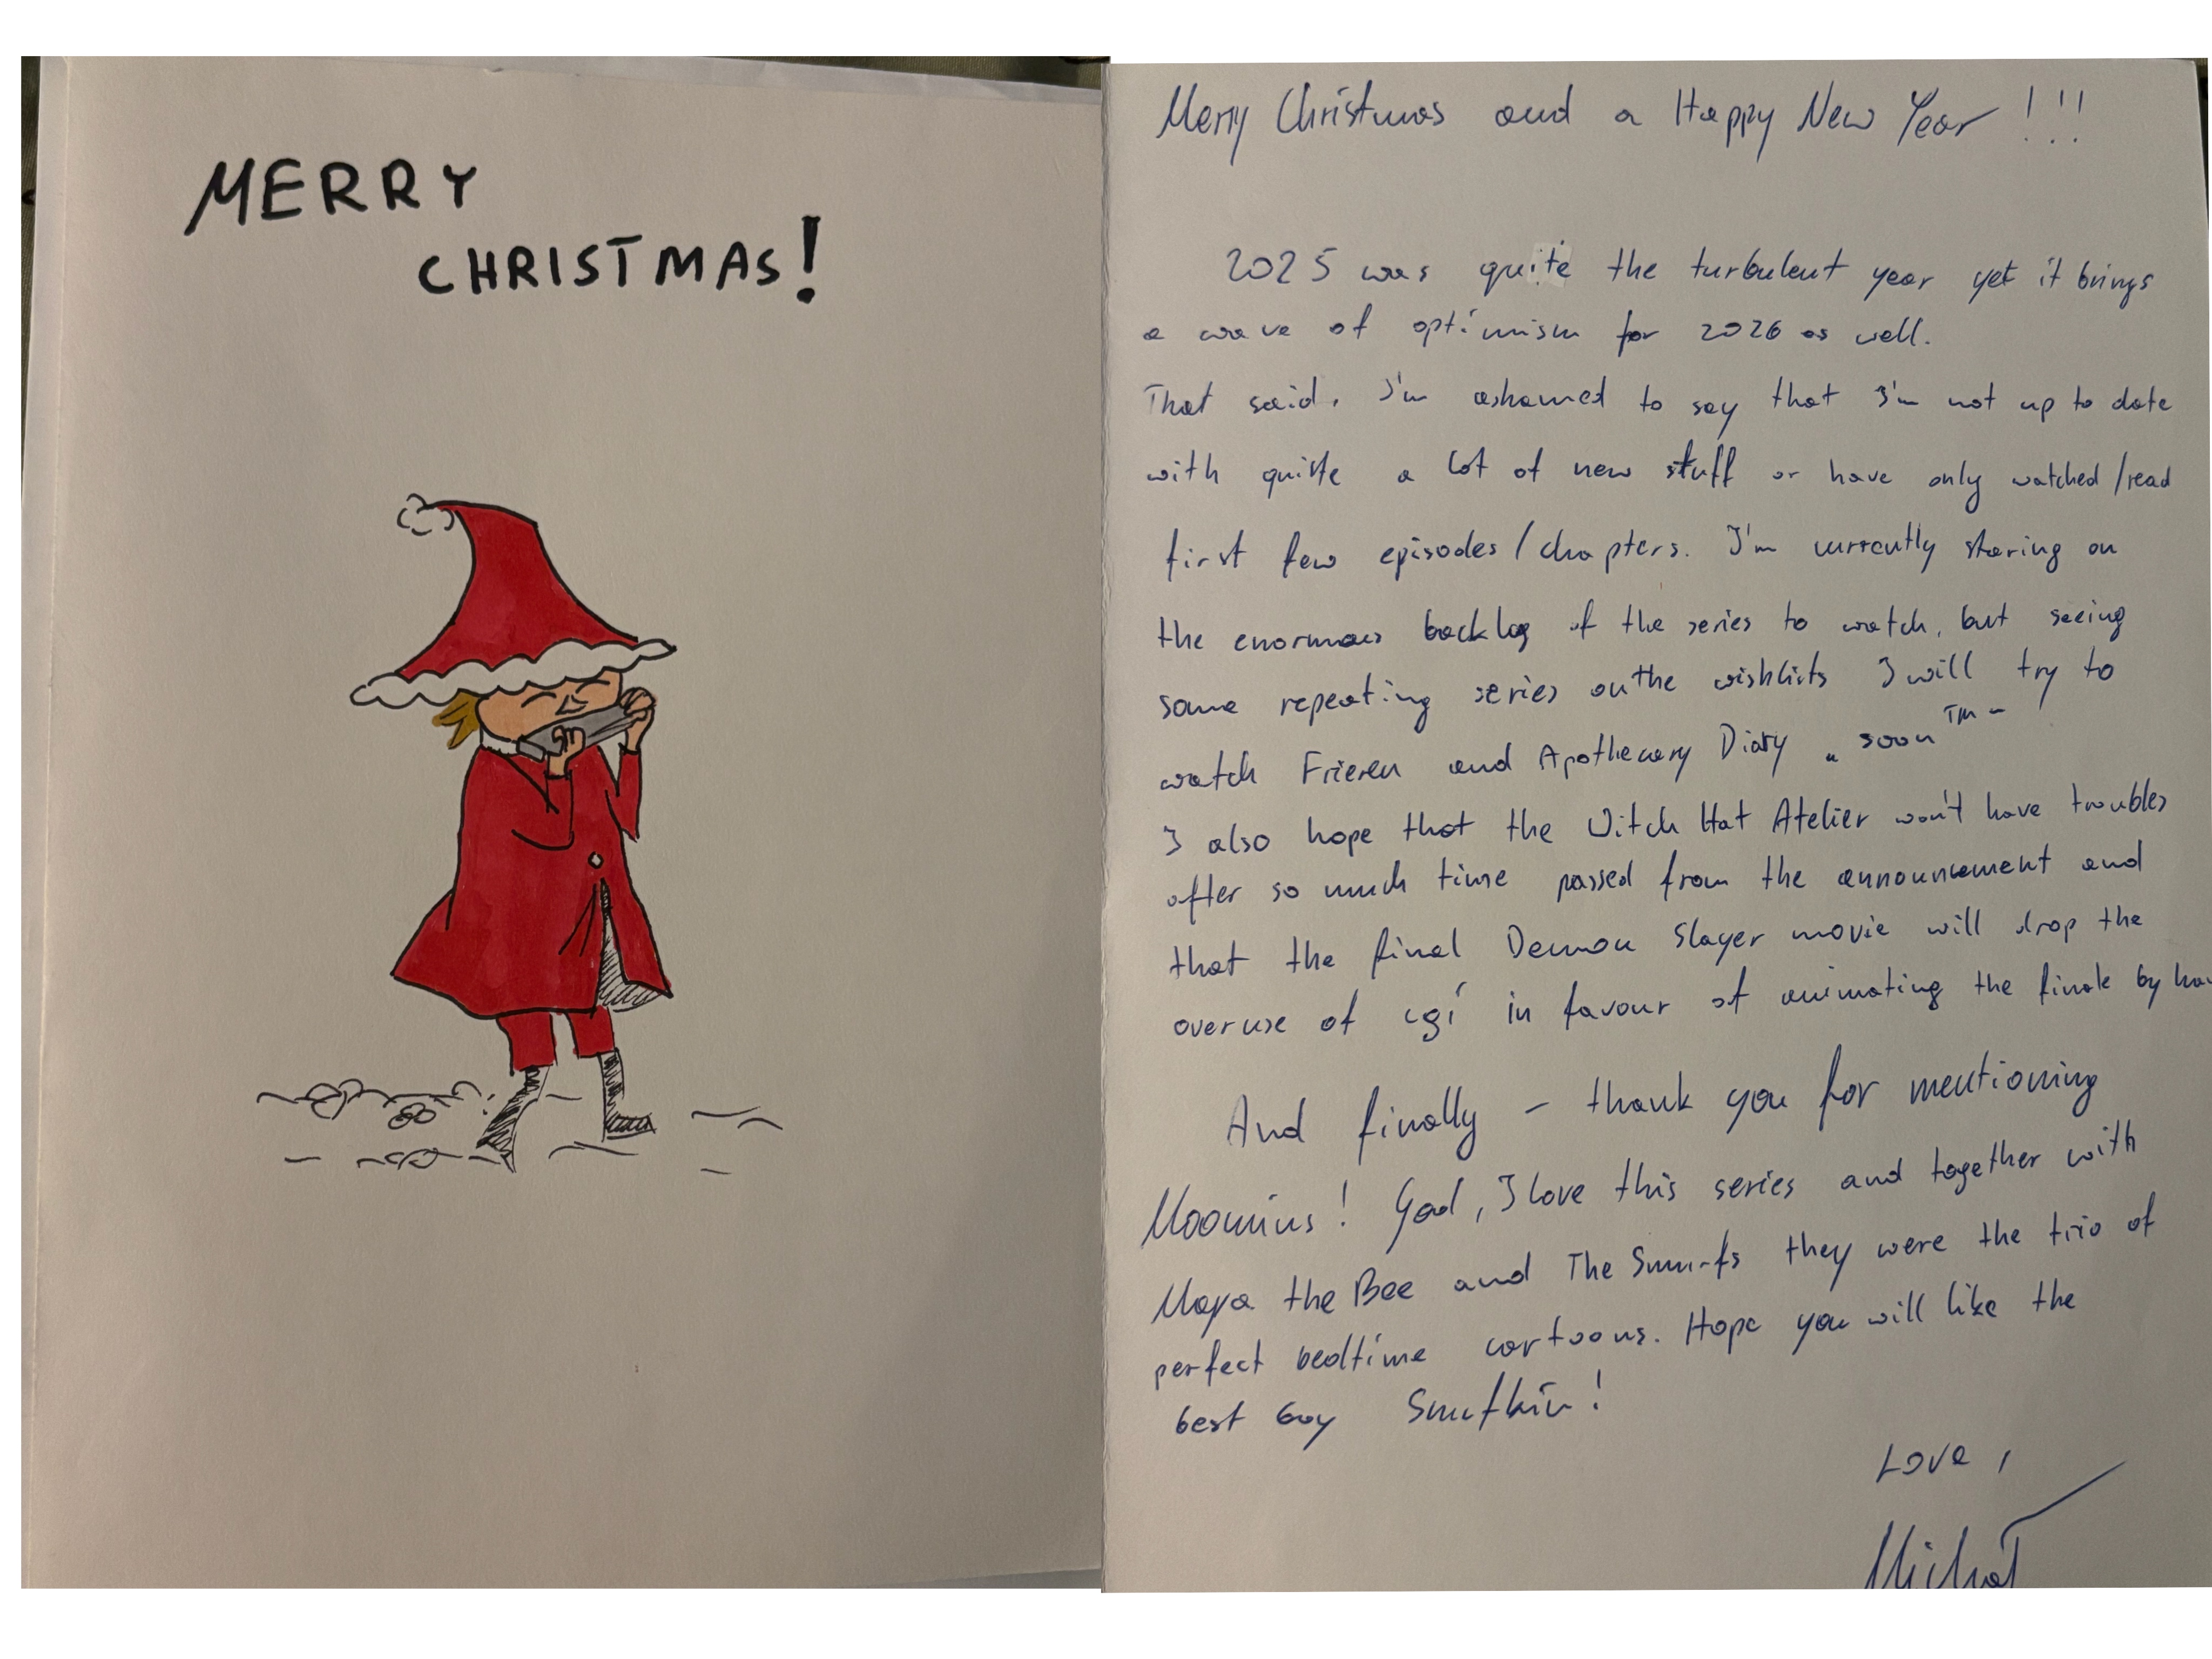 MERRY
CHRISTMAS!
Merry Christmas and a Happy New Year !!!
2025 was quite the turbulent year yet it brings
a wave of optimism for 2026 as well.
That said, I'm ashamed to say that I'm not up to date
with quitte a lot of new stuff or have only watched/read
first few episodes/chapters. I'm currently staring on
the enormous backlog of the series to watch, but seeing
some repeating series on the wishlists I will try to
watch Frieren and Apothecary Diary „soon™"
I also hope that the Witch Hat Atelier won't have troubles
after so much time passed from the announcement and
that the final Demon Slayer movie will drop the
overuse of cgi in favour of animating the finale by
And finally – thank you for mentioning
Moomins! God, I love this series and together with
Maya the Bee and The Smurfs they were the trio of
perfect bedtime cartoons. Hope you will like the
best boy Snufkin!
Love,
Michał